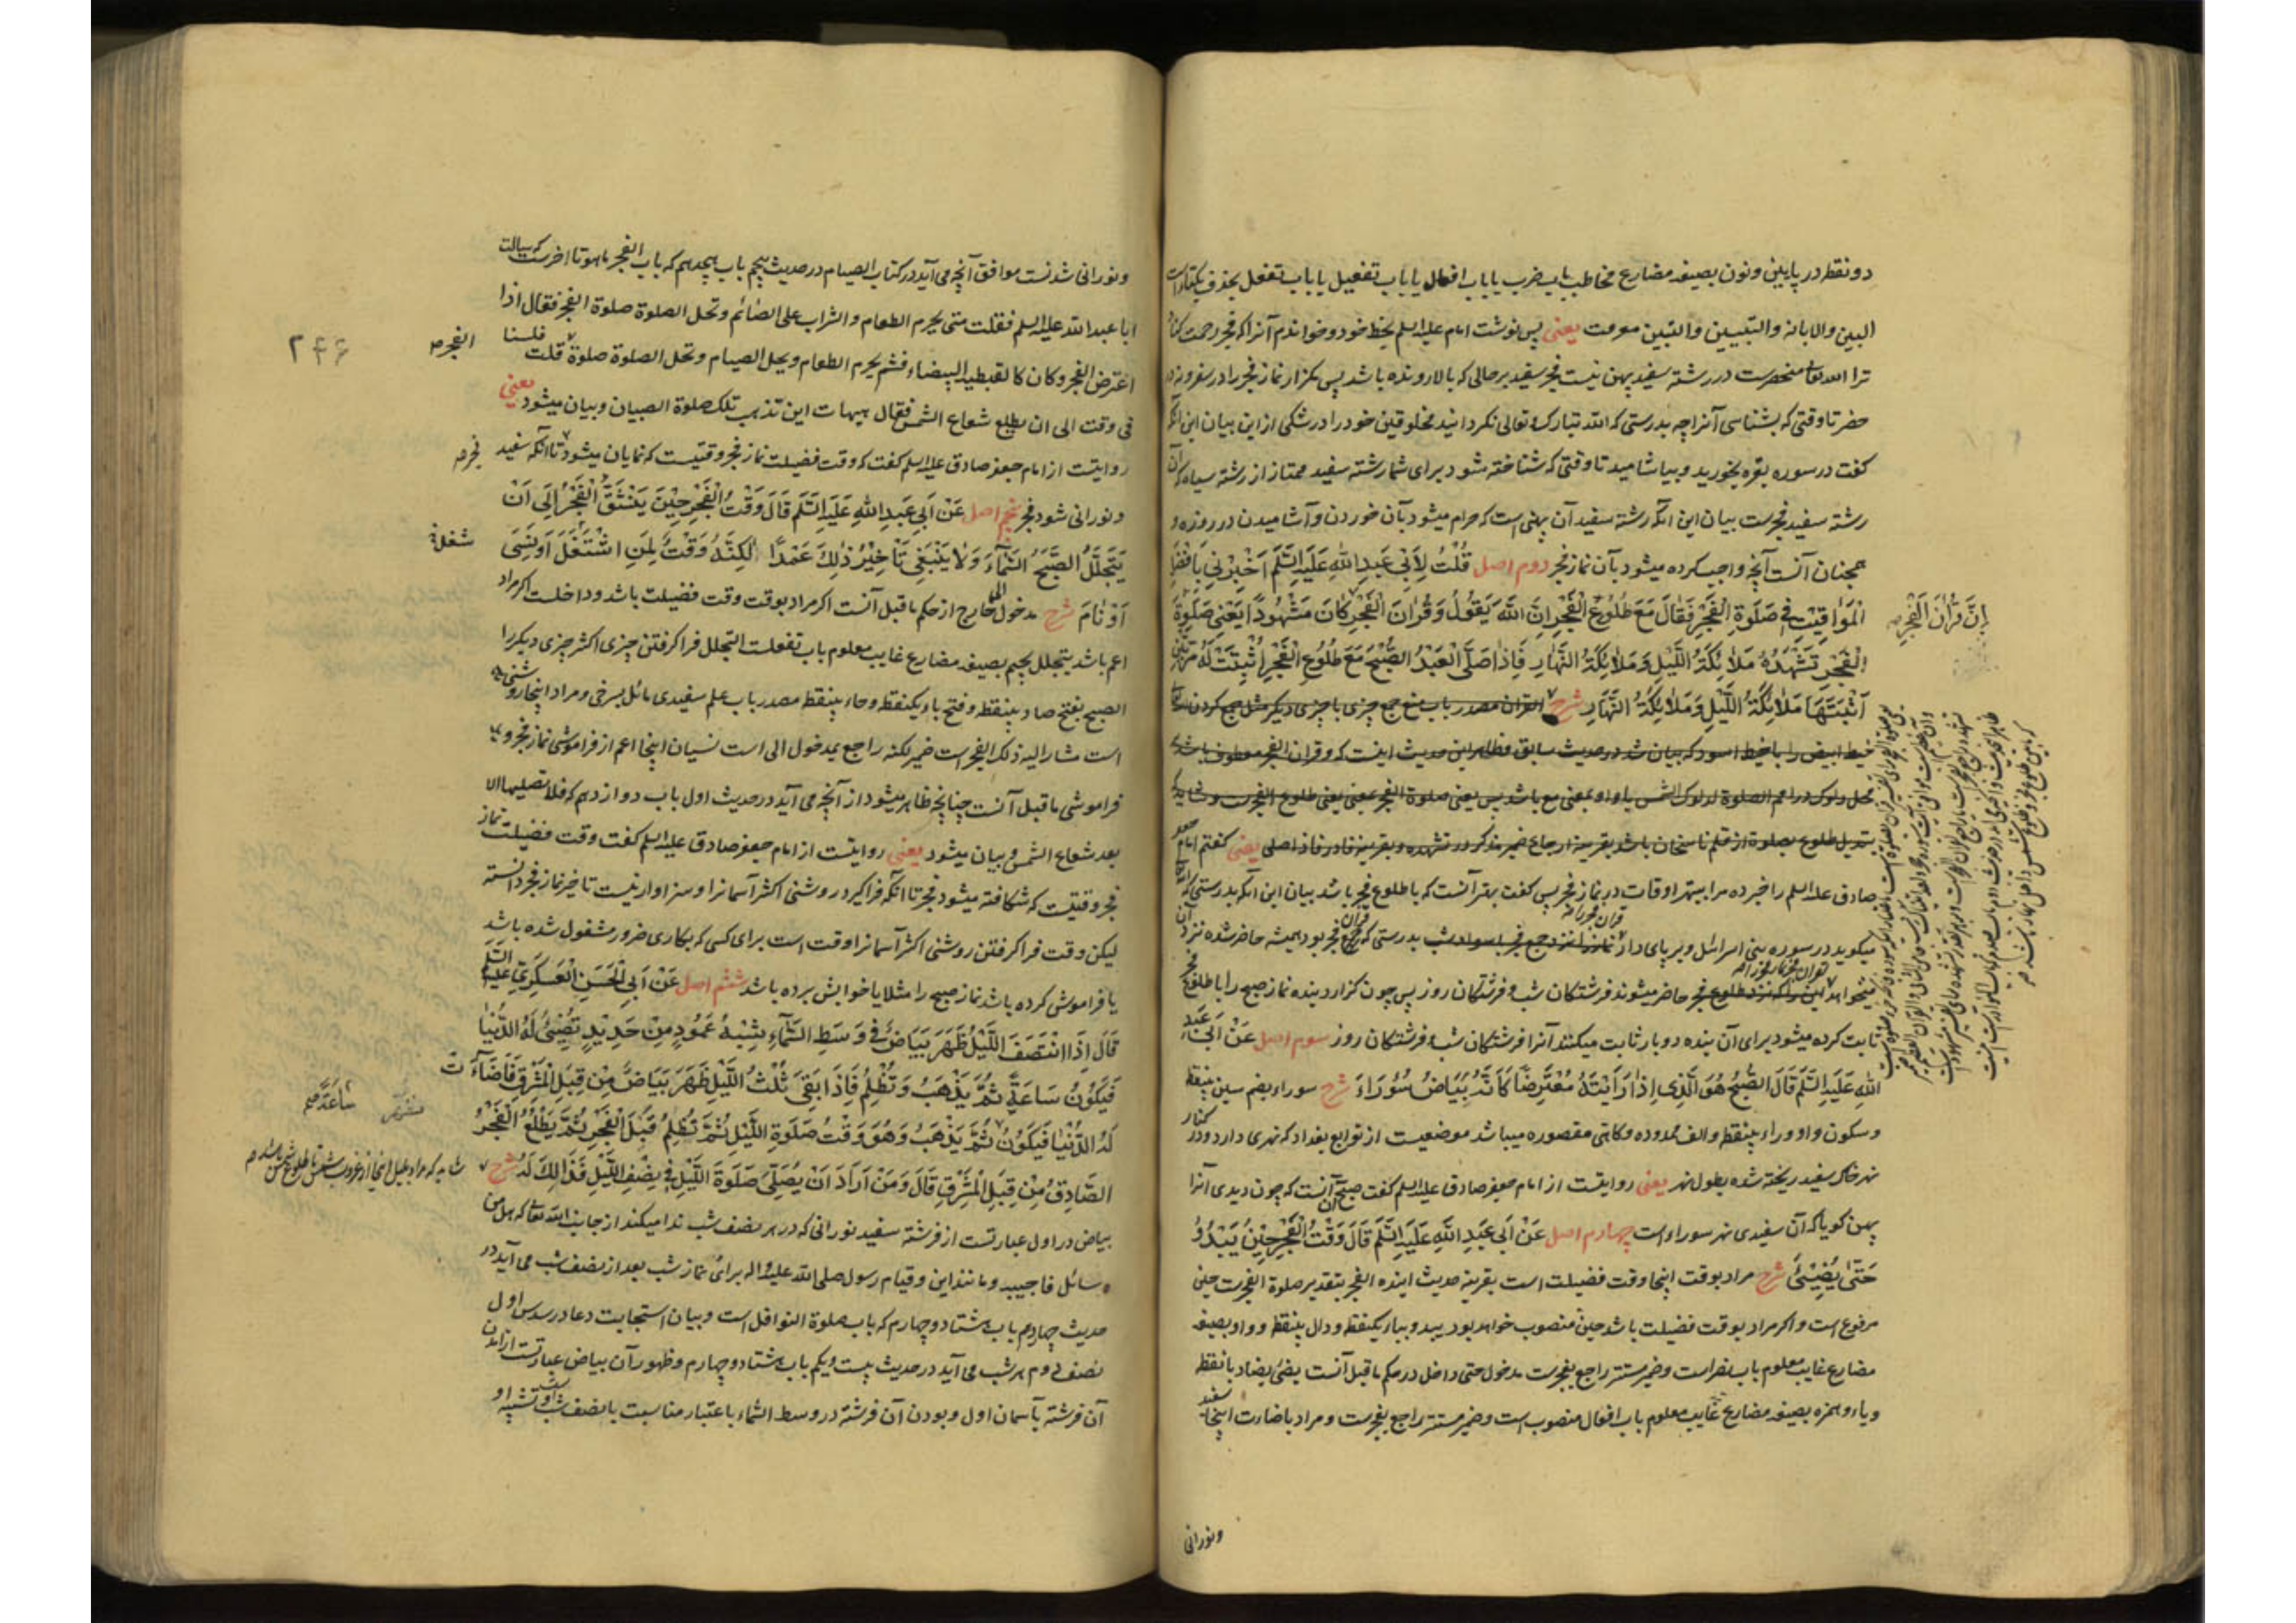 دو نقطه در پایین و نون بصیغه مضارع مخاطب باب ضرب یا باب افعال یا باب تفعیل یا باب تفعل بحذف یکتا است
البین والابانه والتبیین والتبین معرفت یعنی پس نوشت امام علیه السلم بخط خود و خواندم آنرا که فجر رحمت کناد
ترا الله تعالی منحصرست در رشته سفید پهن نیست فجر سفید بر حالی که بالا رونده باشد پس مگزار نماز فجر را در سفر و نه در
حضر تا وقتی که بشناسی آنرا چه بدرستی که الله تبارک و تعالی نگردانید مخلوقین خود را در شکی از این بیان این آنکه
گفت در سوره بقره بخورید و بیاشامید تا وقتی که شناخته شود برای شما رشته سفید ممتاز از رشته سیاه که آن
رشته سفید فجرست بیان این آنکه رشته سفید آن پهنی است که حرام میشود بآن خوردن و آشامیدن در روزه و
همچنان آنست آنچه واجب کرده میشود بآن نماز فجر دوم اصل قُلْتُ لِأَبِي عَبدِ اللهِ عَلَيهِ السَّلَم أَخْبِرْنِي بِأَفْضَلِ
الْمَوَاقِيْتِ فِي صَلٰوةِ الْفَجْرِ فَقَالَ مَعَ طُلُوعِ الْفَجْرِ اِنَّ اللهَ يَقُولُ وَقُرْاٰنَ الْفَجْرِ كَانَ مَشْهُودًا يَعْنِي صَلٰوةَ
اِنَّ قُرْاٰنَ الْفَجْرِ صح
الْفَجْرِ تَشْهَدُهُ مَلَائِكَةُ اللَّيْلِ وَمَلَائِكَةُ النَّهَارِ فَاِذَا صَلَّى الْعَبْدُ الصُّبْحَ مَعَ طُلُوعِ الْفَجْرِ اُثْبِتَتْ لَهُ مَرَّتَيْنِ
اَثْبَتَهَا مَلَائِكَةُ اللَّيْلِ وَمَلَائِكَةُ النَّهَارِ شرح القرآن مصدر باب منع جمع چیزی با چیزی دیگر مثل جمع کردن
خیط ابیض را با خیط اسود که بیان شد در حدیث سابق فظاهر این حدیث اینست که و قران الفجر معطوف باشد بر
محل دلوک در اقم الصلوة لدلوک الشمس یا واو بمعنی مع باشد پس یعنی صلوة الفجر بمعنی یعنی طلوع الفجرست و شاید که
تبدیل طلوع بصلوة از قلم ناسخان باشد بقرینه ارجاع ضمیر مذکر در تشهده و بقرینه فا در فاذا صلی یعنی گفتم امام جعفر
صادق علیه السلم را خبر ده مرا ببهتر اوقات در نماز فجر پس گفت بهتر آنست که با طلوع فجر باشد بیان این آنکه بدرستی که
میگوید در سوره بنی اسرائل و برپای دار قران فجر را بدرستی که قران فجر بود همیشه حاضر شده نزد آن
میخواهد نماز فجر را حاضر میشوند فرشتگان شب و فرشتگان روز پس چون گزارد بنده نماز صبح را با طلوع فجر
ثابت کرده میشود برای آن بنده دو بار ثابت میکنند آنرا فرشتگان شب و فرشتگان روز سوم اصل عَنْ اَبِي عَبدِ
اللهِ عَلَيهِ السَّلَم قَالَ الصُّبْحُ هُوَ الَّذِي اِذَا رَاَيْتَهُ مُعْتَرِضًا كَاَنَّهُ بَيَاضُ سُوْرَاءَ شرح سوراء بضم سین بینقطه
و سکون واو و راء بینقطه و الف ممدوده و گاهی مقصوره میباشد موضعیست از توابع بغداد که نهری دارد و در کنار
نهر خاک سفید ریخته شده بطول نهر یعنی روایتست از امام جعفر صادق علیه السلم گفت صبح آن آنست که چون دیدی آنرا
پهن گویا که آن سفیدی نهر سوراء است چهارم اصل عَنْ اَبِي عَبدِ اللهِ عَلَيهِ السَّلَم قَالَ وَقْتُ الْفَجْرِ حِيْنَ يَبْدُوُ
حَتّٰى يُضِيْئَ شرح مراد بوقت اینجا وقت فضیلت است بقرینه حدیث اینده الفجر بتقدیر صلوة الفجرست حین
مرفوع است و اگر مراد بوقت فضیلت باشد حین منصوب خواهد بود یبدو بباء یکنقطه و دال بینقطه و واو بصیغه
مضارع غایب معلوم باب نصر است و ضمیر مستتر راجع بفجرست مدخول حتی داخل در حکم ماقبل آنست یضیئ بضاد بانقطه
و یاء و همزه بصیغه مضارع غایب معلوم باب افعال منصوب است و ضمیر مستتر راجع بفجرست و مراد باضاءت اینجا سفید
و نورانی
و نورانی شدنست موافق آنچه می آید در کتاب الصیام در حدیث پنجم باب هجدهم که باب الفجر ما هو تا اخرست که سالت
ابا عبد الله علیه السلم فقلت متی یحرم الطعام والشراب علی الصائم وتحل الصلوة صلوة الفجر فقال اذا
اعترض الفجر وکان کالقبطیة البیضاء فثم یحرم الطعام ویحل الصیام وتحل الصلوة صلوة الفجر صح قلت فلسنا
۲۴۶
فی وقت الی ان یطلع شعاع الشمس فقال هیهات این تذهب تلک صلوة الصبیان و بیان میشود یعنی
روایتست از امام جعفر صادق علیه السلم گفت که وقت فضیلت نماز فجر وقتیست که نمایان میشود فجر صح تا آنکه سفید
و نورانی شود فجر پنجم اصل عَنْ اَبِي عَبدِ اللهِ عَلَيهِ السَّلَم قَالَ وَقْتُ الْفَجْرِ حِيْنَ يَنْشَقُّ الْفَجْرُ اِلٰى اَنْ
يَتَجَلَّلَ الصُّبْحُ السَّمَاءَ وَلَا يَنْبَغِي تَاْخِيْرُ ذٰلِكَ عَمْدًا لٰكِنَّهُ وَقْتٌ لِمَنِ اشْتَغَلَ اَوْ نَسِيَ
شغل
اَوْ نَامَ شرح مدخول الی خارج از حکم ماقبل آنست اگر مراد بوقت وقت فضیلت باشد و داخلست اگر مراد
اعم باشد یتجلل بجیم بصیغه مضارع غایب معلوم باب تفعلست التجلل فراگرفتن چیزی اکثر چیزی دیگر را
الصبح بفتح صاد بینقطه و فتح باء یکنقطه و حاء بینقطه مصدر باب علم سفیدی مائل بسرخی و مراد اینجا روشنی
است مشار الیه ذلک الفجر است ضمیر لکنه راجع بمدخول الی است نسیان اینجا اعم از فراموشی نماز فجر و
فراموشی ماقبل آنست چنانچه ظاهر میشود از آنچه می آید در حدیث اول باب دوازدهم که فلا تصلیها الا
بعد شعاع الشمس و بیان میشود یعنی روایتست از امام جعفر صادق علیه السلم گفت وقت فضیلت نماز
فجر وقتیست که شکافته میشود فجر تا آنکه فراگیرد روشنی اکثر آسمانرا و سزاوار نیست تاخیر نماز فجر دانسته
لیکن وقت فراگرفتن روشنی اکثر آسمانرا وقت است برای کسی که بکاری ضرور مشغول شده باشد
یا فراموش کرده باشد نماز صبح را مثلا یا خوابش برده باشد ششم اصل عَنْ اَبِي الْحَسَنِ الْعَسْكَرِيِّ عَلَيهِ السَّلَم
قَالَ اِذَا انْتَصَفَ اللَّيْلُ ظَهَرَ بَيَاضٌ فِي وَسَطِ السَّمَاءِ شِبْهُ عَمُودٍ مِنْ حَدِيْدٍ تُضِيْئُ لَهُ الدُّنْيَا
فَيَكُوْنُ سَاعَةً ثُمَّ يَذْهَبُ وَتُظْلِمُ فَاِذَا بَقِيَ ثُلُثُ اللَّيْلِ ظَهَرَ بَيَاضٌ مِنْ قِبَلِ الْمَشْرِقِ فَاَضَآءَتْ
لَهُ الدُّنْيَا فَيَكُوْنُ سَاعَةً صح ثُمَّ يَذْهَبُ وَهُوَ وَقْتُ صَلٰوةِ اللَّيْلِ ثُمَّ تُظْلِمُ قَبْلَ الْفَجْرِ ثُمَّ يَطْلُعُ الْفَجْرُ
الصَّادِقُ مِنْ قِبَلِ الْمَشْرِقِ قَالَ وَمَنْ اَرَادَ اَنْ يُصَلِّيَ صَلٰوةَ اللَّيْلِ فِي نِصْفِ اللَّيْلِ فَذَالِكَ لَهُ شرح
شاید که مراد بلیل اینجا از غروب شمس تا طلوع شمس باشد صح
بیاض در اول عبارتست از فرشته سفید نورانی که در هر نصف شب ندا میکند از جانب الله تعالی که هل من
سائل فاجیبه و مانند این و قیام رسول صلی الله علیه و اله برای نماز شب بعد از نصف شب می آید در
حدیث چهاردهم باب هشتاد و چهارم که باب صلوة النوافل است و بیان استجابت دعا در سدس اول
نصف دوم هر شب می آید در حدیث بیست و یکم باب هشتاد و چهارم و ظهور آن بیاض عبارتست از آمدن
آن فرشته بآسمان اول و بودن آن فرشته در وسط السماء باعتبار مناسبت با نصف شب است و تشبیه او